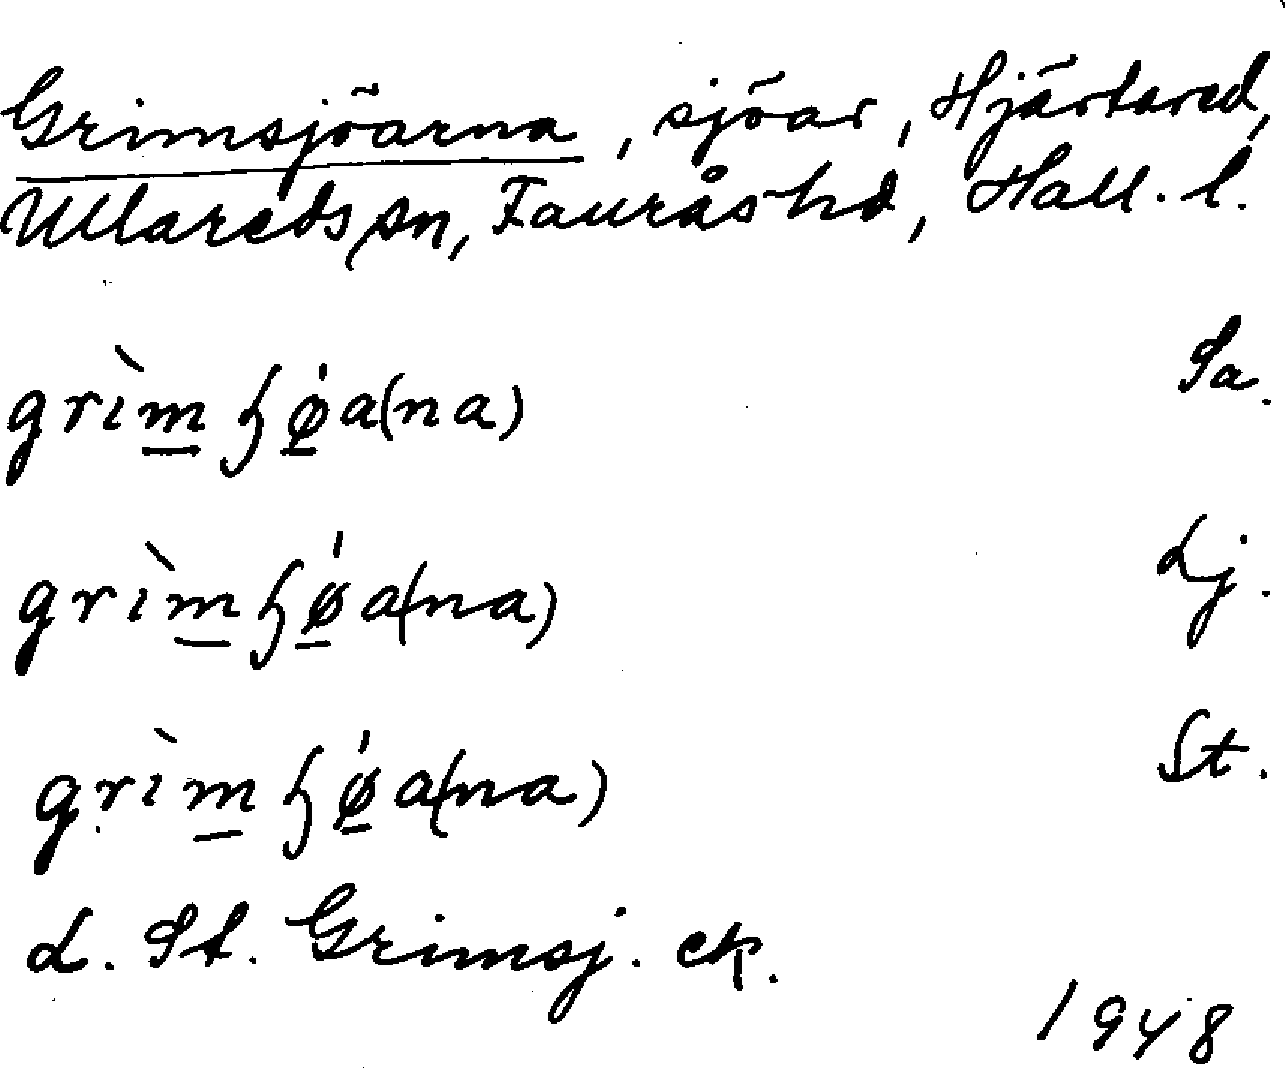 Grimsjöarna, sjöar, Hjärtared,
Ullareds sn, Fauråshd, Hall. l.
grìm̲ɧǿ̲a(na) Sa.
grìm̲ɧǿ̲a(na) Lj.
grìm̲ɧǿ̲a(na) St.
L. St. Grimsj. ek.
1948